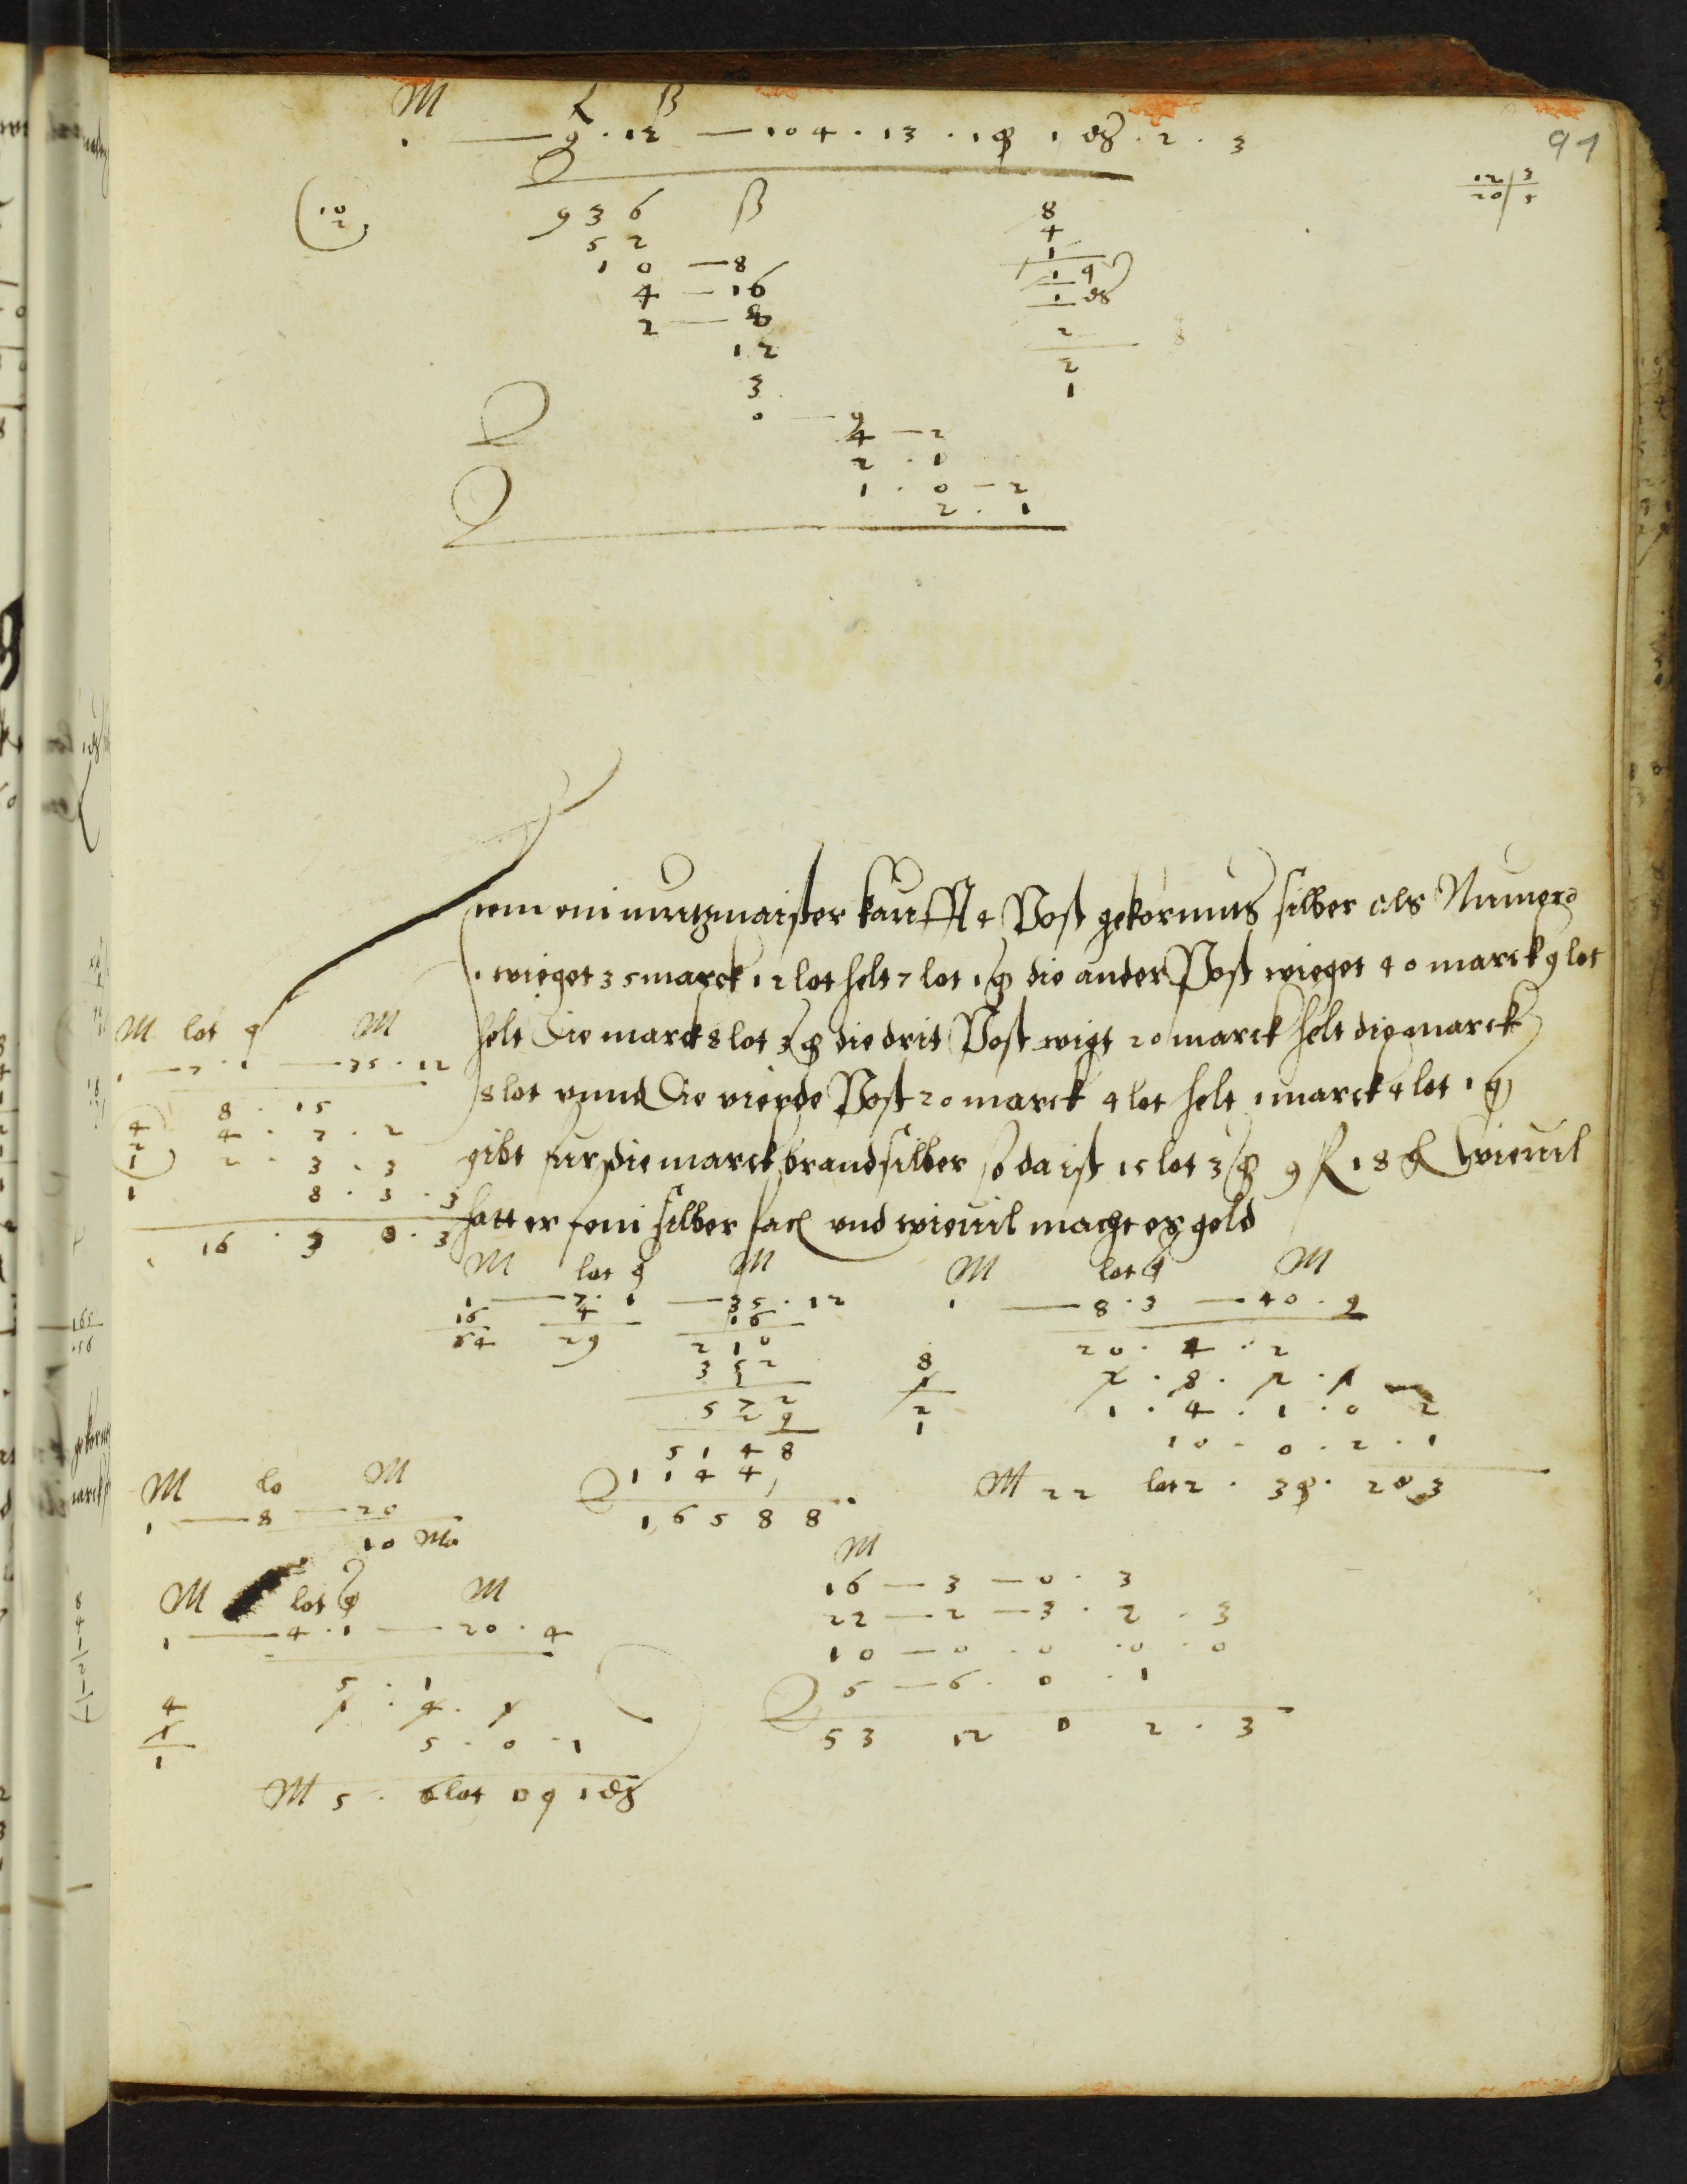 91
M fl ß
1 — 9 · 12 — 104 · 13 · 1 q 1 d8 · 2 · 3
12/3
20/5
10
2
9 3 6 ß
5 2
1 0 — 8
4 — 16
2 — 8
12
3
0 — 9
4 — 2
2 · 1
1 · 0 — 2
2 · 1
8
4
1
1 q
1 d8
2
2
1
Item ein muntzmaister kaufft 4 Post gekornnts silber als Numero
1 wieget 35 marck 12 lot helt 7 lot 1 q die ander Post wieget 40 marck 9 lot
helt Die marck 8 lot 3 q die drit Post wigt 20 marck helt die marck
8 lot vnnd Die vierde Post 20 marck 4 lot helt 1 marck 4 lot 1 q
gibt fur die marck brandsilber so da ist 15 lot 3 q 9 fl 18 ß wieuil
hatt er fein silber vnd wieuil macht es geld
M lot q M
1 — 7 · 1 — 35 · 12
8 · 15
4 · 7 · 2
2 · 3 · 3
8 · 3 · 3
4
2
1
1
16 · 3 0 · 3
M lot q M
1 — 7 · 1 — 35 · 12
16 4 16
64 29 210
352
572
29
5148
1144
16588
M lot q M
1 — 8 · 3 — 40 · 9
20 · 4 · 2
2 · 8 · 2 · 1
1 · 4 · 1 · 0 2
10 · 0 · 2 · 1
8
1
2
1
M 22 lot 2 · 3 q · 2 d8 3
M lo M
1 — 8 — 20
10 Ma
M lot q M
1 — 4 · 1 — 20 · 4
5 · 1
1 · 4 · 1
5 · 0 · 1
4
1
1
M 5 · 6 lot 0 q 1 d8
M
16 — 3 — 0 · 3
22 — 2 — 3 · 2 · 3
10 — 0 · 0 · 0 · 0
5 — 6 · 0 · 1
53 12 0 2 · 3